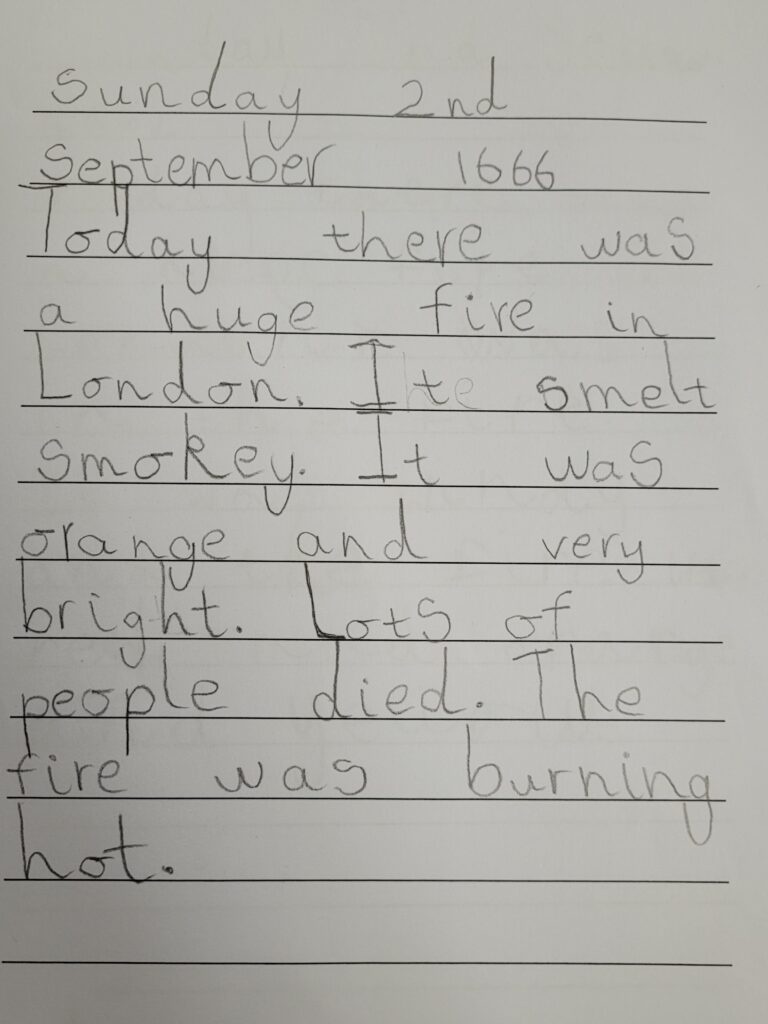 Sunday 2nd
September 1666
Today there was
a huge fire in
London. It smelt
smokey. It was
orange and very
bright. Lots of
people died. The
fire was burning
hot.